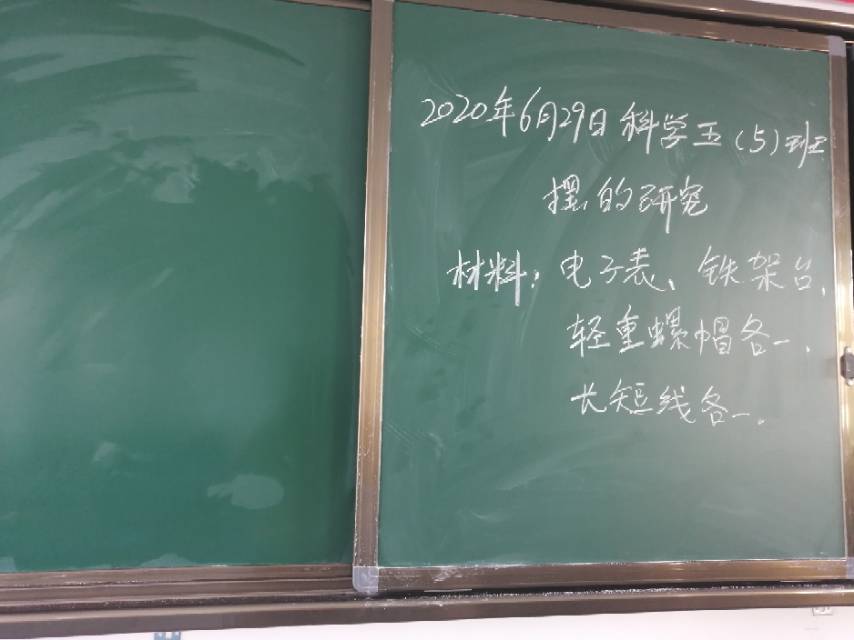 2020年6月29日科学五(5)班
摆的研究
材料：电子表、铁架台、
轻重螺帽各一、
长短线各一。